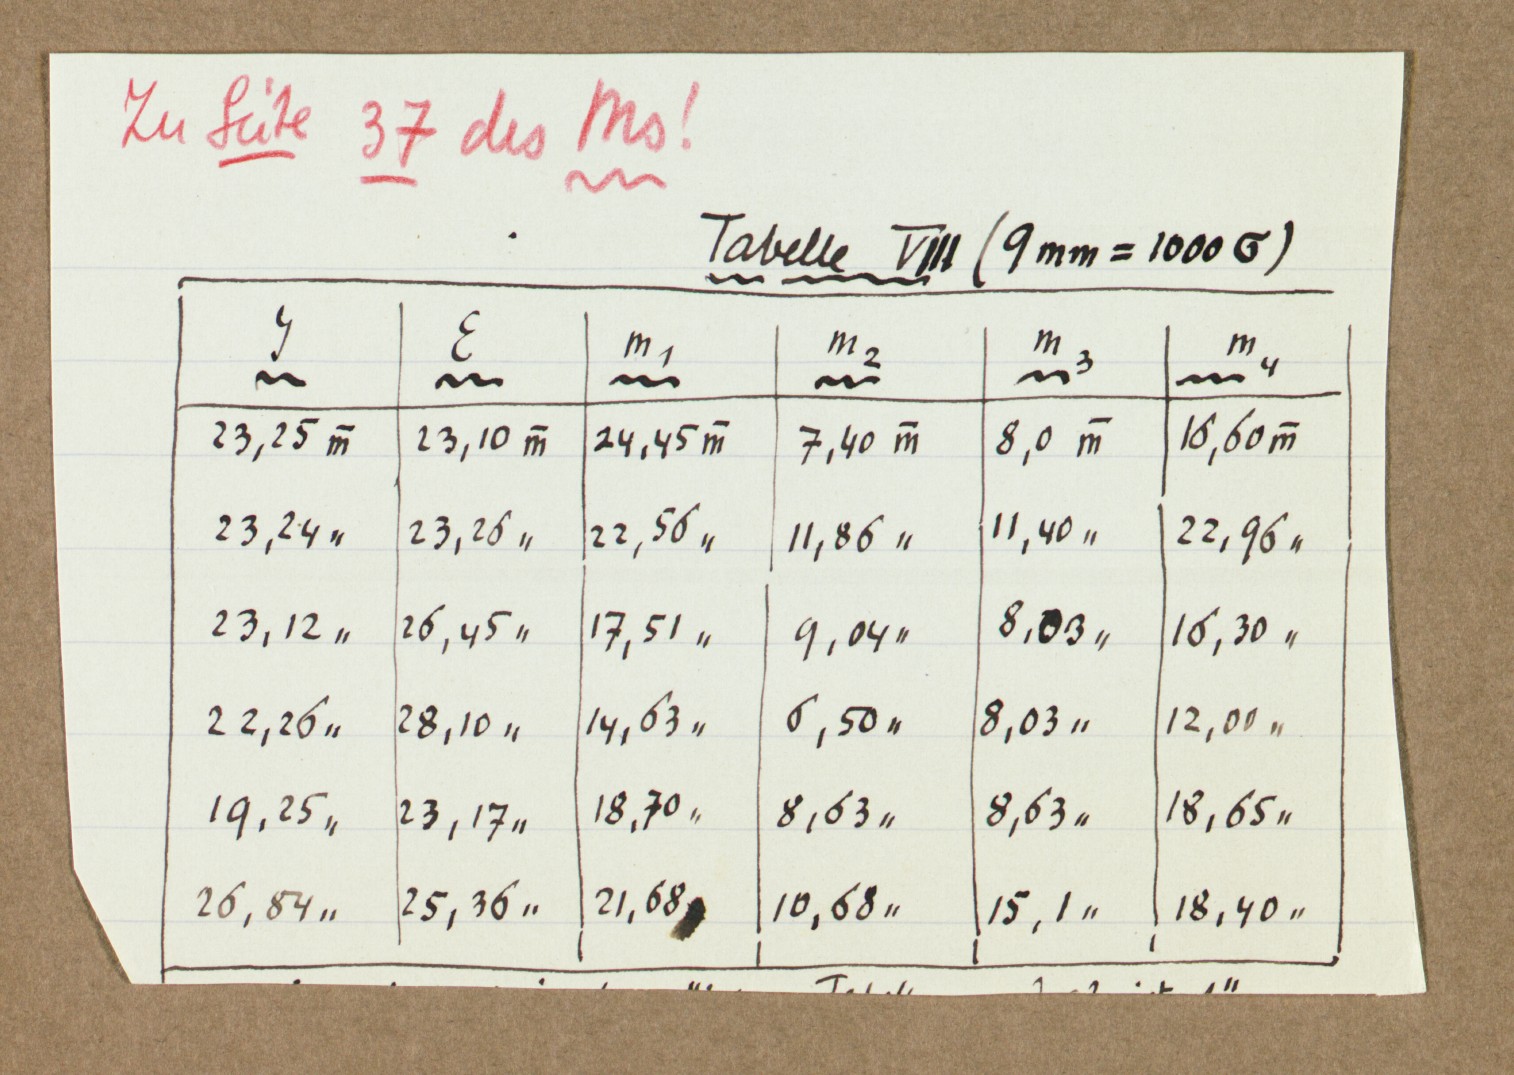 Zu Seite 37 des Ms!
Tabelle VIII (9 mm = 1000 σ)
y ε m₁ m₂ m₃ m₄
23,25 m̄ 23,10 m̄ 24,45 m̄ 7,40 m̄ 8,0 m̄ 16,60 m̄
23,24 " 23,26 " 22,56 " 11,86 " 11,40 " 22,96 "
23,12 " 26,45 " 17,51 " 9,04 " 8,03 " 16,30 "
22,26 " 28,10 " 14,63 " 6,50 " 8,03 " 12,00 "
19,25 " 23,17 " 18,70 " 8,63 " 8,63 " 18,65 "
26,84 " 25,36 " 21,68 10,68 " 15,1 " 18,40 "